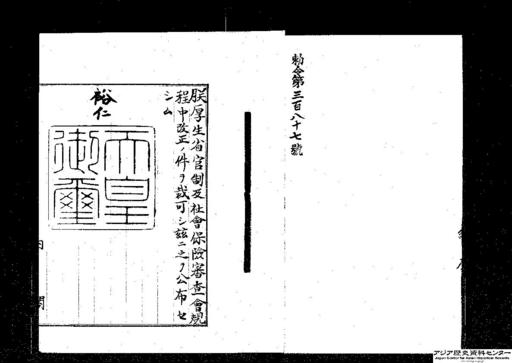 勅令第三百八十七號
朕厚生省官制及社會保險審査會規
程中改正ノ件ヲ裁可シ茲ニ之ヲ公布セ
シム
裕仁
天皇
御璽
内閣
アジア歴史資料センター
Japan Center for Asian Historical Records